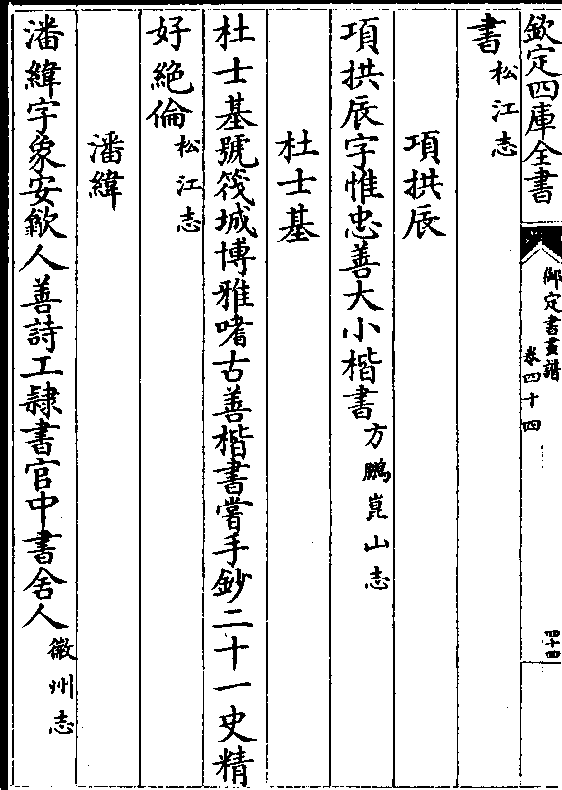 欽定四庫全書
御定書畫譜
卷四十四
四十四
書松江志
項拱辰
項拱辰字惟忠善大小楷書方鵬崑山志
杜士基
杜士基號筏城博雅嗜古善楷書嘗手鈔二十一史精
好絶倫松江志
潘緯
潘緯字象安歙人善詩工隷書官中書舍人徽州志